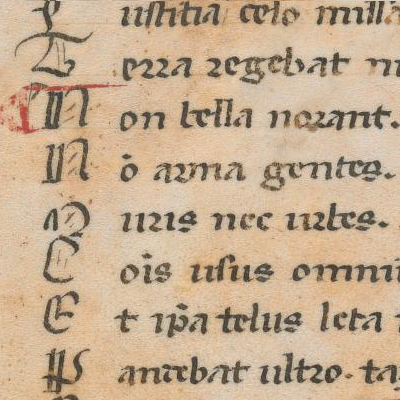 Iustitia celo missa
Terra regebat m
Non bella norant.
Nō arma gentes.
Muris nec urbes.
Cōis usus omni
Et ip̄a telus leta
Pandebat ultro. ta